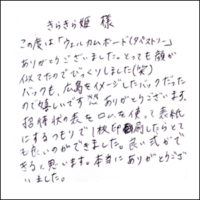 きらきら姫 様
この度は「ウェルカムボード(タペストリー)
ありがとうございました。とっても顔が
似てたのでびっくりしました(笑)
バックも、広島をイメージしたバックだった
ので嬉しいです ありがとうございます。
招待状の表を ロムを使って表紙
にするつもりで1枚印刷したらとて
も良いのができました。良い式がで
きると思います。本当にありがとうござ
いました。